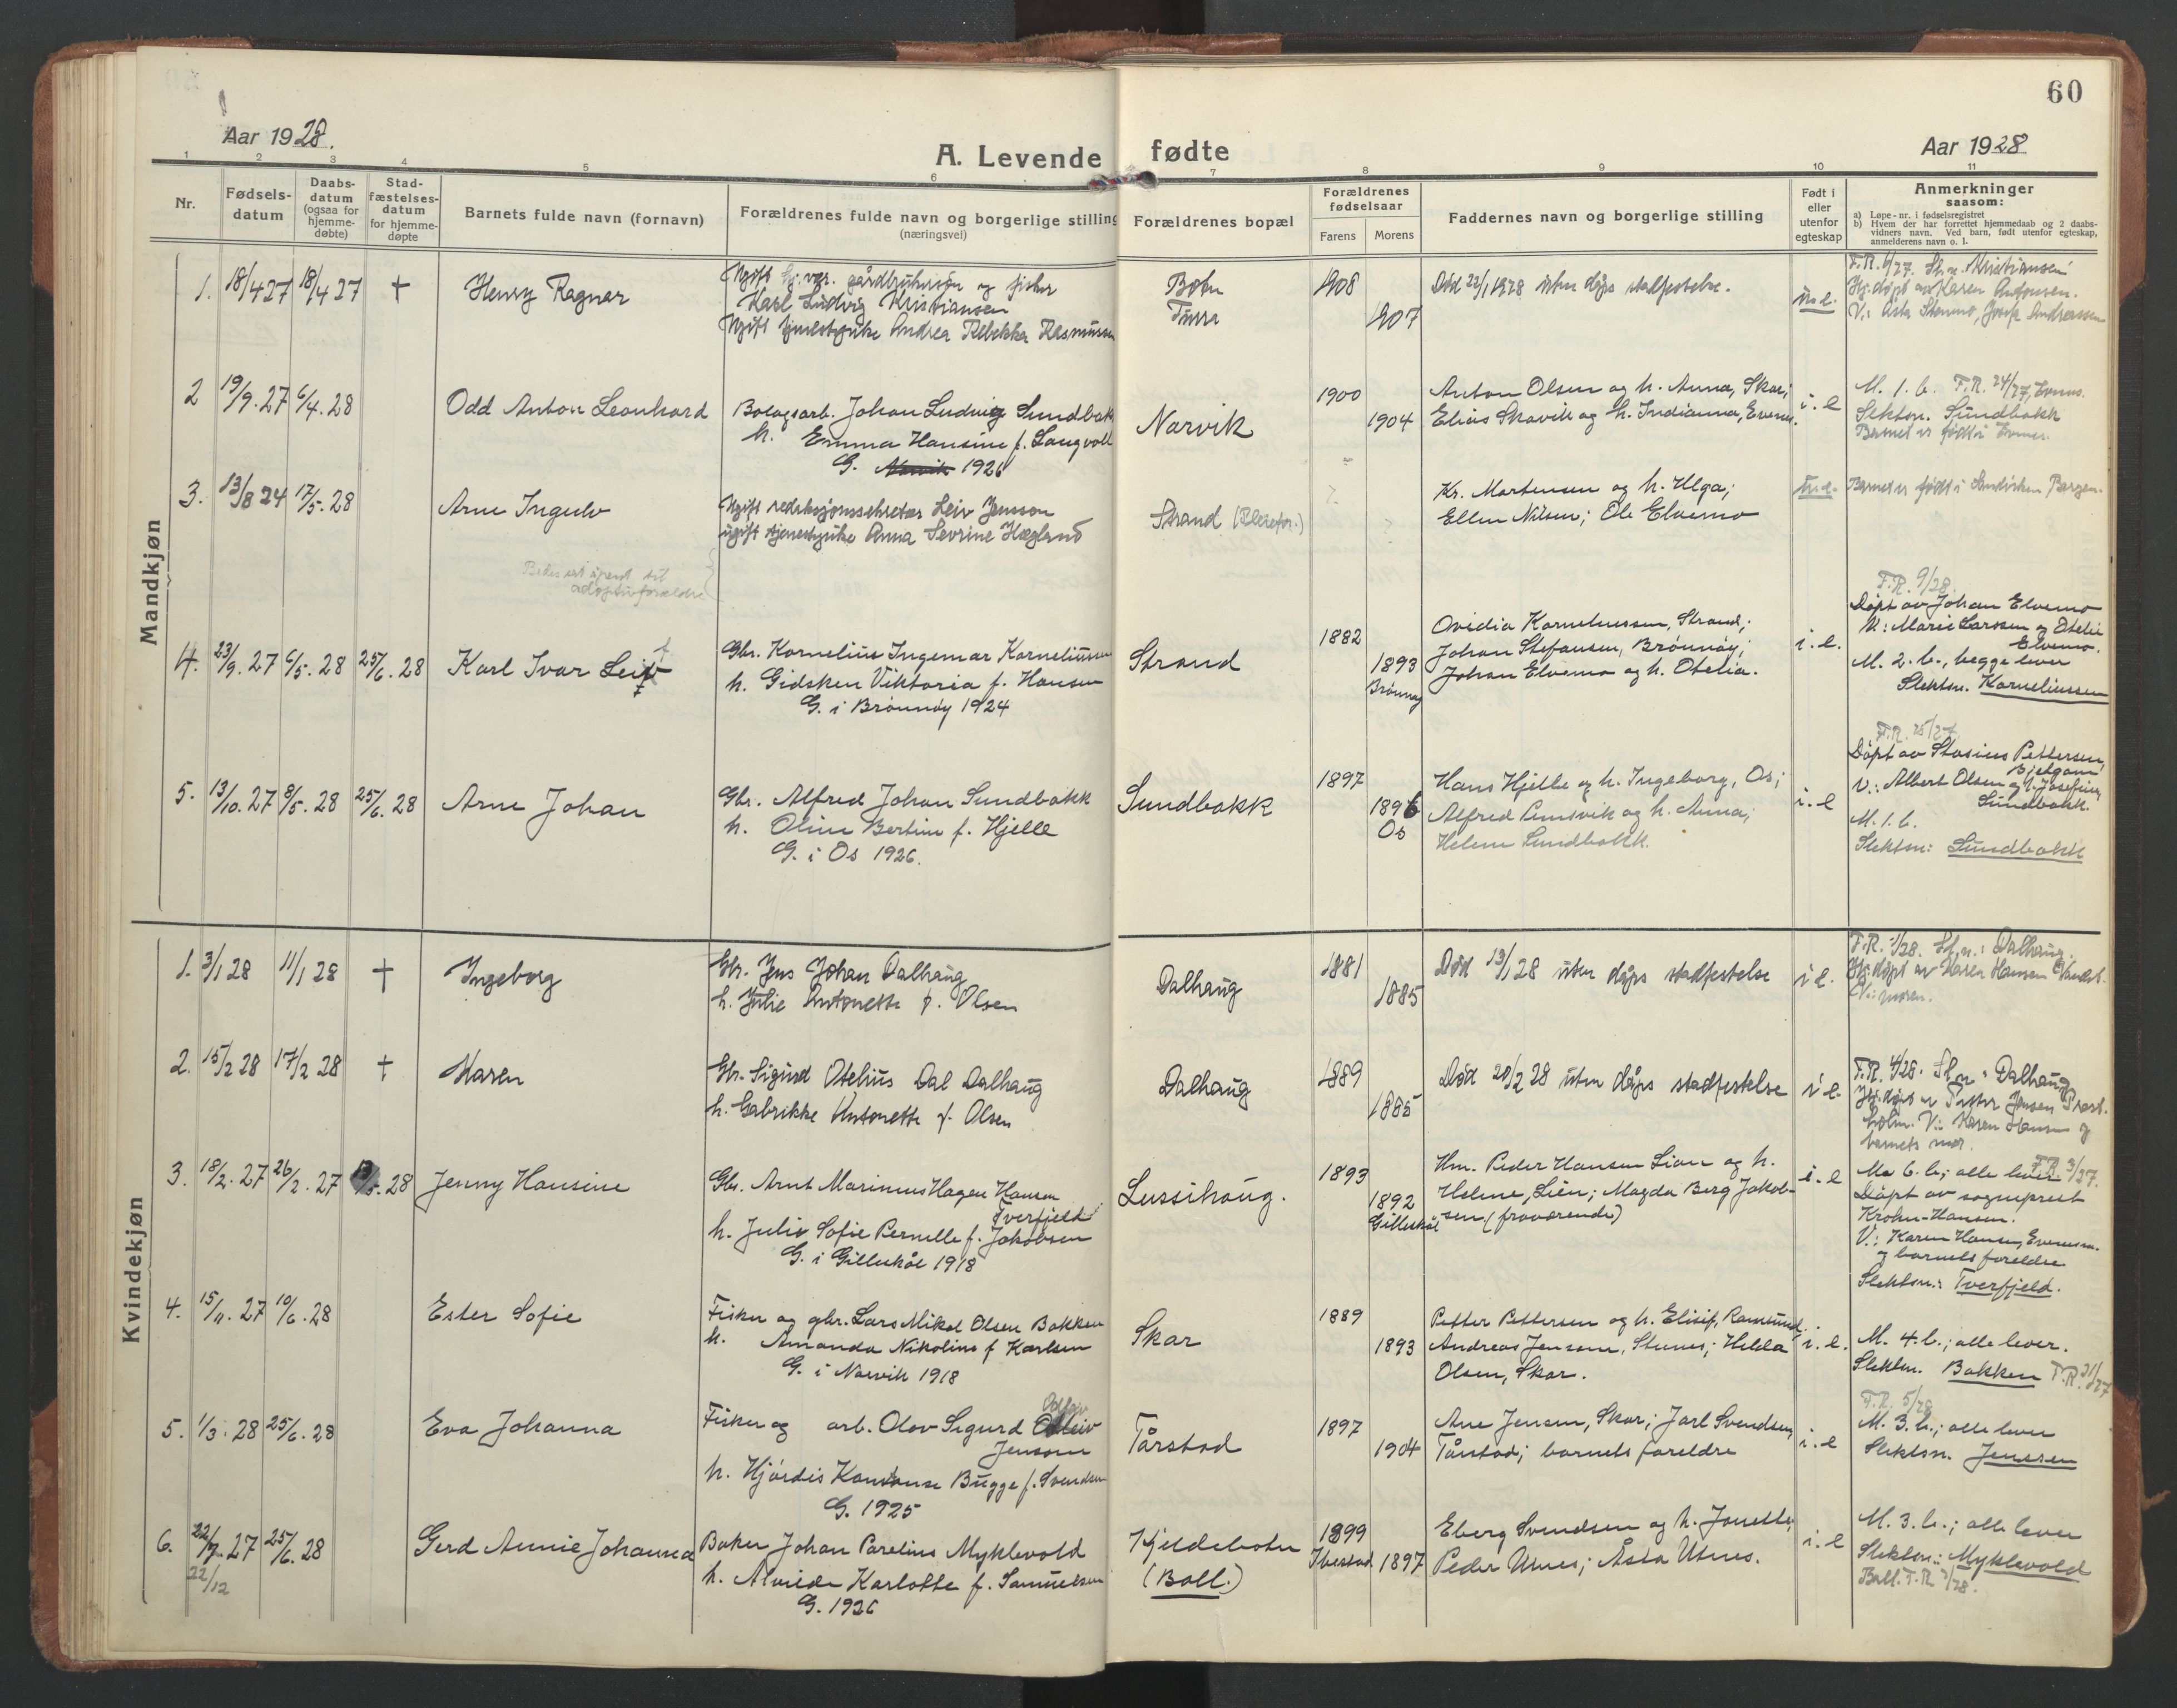 60
Aar 1928.
A. Levende fødte
Aar 1928
1 2 3 4 5 6 7 8 9 10 11
Nr.
Fødsels-
datum
Daabs-
datum
(ogsaa for
hjemme-
døbte)
Stad-
fæstelses-
datum
for hjemme-
døpte
Barnets fulde navn (fornavn)
Forældrenes fulde navn og borgerlige stilling
(næringsvei)
Forældrenes bopæl
Forældrenes
fødselsaar
Farens Morens
Faddernes navn og borgerlige stilling
Født i
eller
utenfor
egteskap
Anmerkninger
saasom:
a) Løpe-nr. i fødselsregistret
b) Hvem der har forrettet hjemmedaab og 2 daabs-
vidners navn. Ved barn, født utenfor egteskap,
anmelderens navn o. l.
Mandkjøn
1. 18/4 27 18/4 27 † Henry Ragnar
Ugift gårdbruker og fisker
Karl Ludvig Kristiansen
Ugift tjenestpike Andrea Rebekka Rasmussen
1908
1907
Død 22/1 1928 uten dåps stadfestelse.
u.e.
Hj.døpt av Karen Antonsen.
2 19/9. 27 6/4. 28
Odd Anton Leonhard
Bolagsarb. Johan Ludvig Sundbakk
h. Emma Hansine f. Langvoll
G. Narvik 1926
Narvik
1900
1904
Anton Olsen og h. Anna, Skar;
Elias Skavik og h. Indianna, Evenes.
i. e
M. 1. b. F.R. 24/27, Evenes.
Slektsn. Sundbakk
Barnet er født i Evenes.
3. 13/8 24 17/5. 28
Arne Ingulv
Ugift redaksjonssekretær Leiv Jensson
ugift tjenestpike Anna Sevrine Hægland
adoptivforeldre
Strand (Pleiefor.)
Kr. Martensen og h. Helga;
Ellen Nilsen; Ole Elvemo
u.e.
Barnet er født i Bergen.
4. 23/9. 27 6/5. 28 25/6. 28
Karl Ivar Leif
Gbr. Kornelius Ingemar Korneliussen
h. Gidsken Viktoria f. Hansen
G. i Brønnøy 1924
Strand
1882
1893
Brønnøy
Ovidia Korneliussen, Strand;
Johan Stefansen, Brønnøy;
Johan Elvemo og h. Otelia.
i. e.
F.R. 9/28
Døpt av Johan Elvemo
V.: Marie Larssen og Otelie
Elvemo.
M. 2. b., begge lever
Slektsn. Korneliussen
5. 13/10. 27 8/5. 28 25/6. 28
Arne Johan
Gbr. Alfred Johan Sundbakk
h. Oline Bertine f. Hjelle
G. i Os 1926.
Sundbakk
1897
1896
Os
Hans Hjelle og h. Ingeborg, Os;
Alfred og h. Anna;
Helene Sundbakk.
i. e
F.R. 25/27
Døpt av Stasius Pettersen,
V.: Albert Olsen og Josefine
Sundbakk.
M. 1. b.
Slektsn: Sundbakk
Kvindekjøn
1. 3/1 28 11/1 28 † Ingeborg
Gbr. Jens Johan Dalhaug
h. Julie Antonette f. Olsen
Dalhaug
1881
1885
Død 13/1 28 uten dåps stadfestelse
i e.
F.R. 1/28. Sl.n.: Dalhaug.
Hj.døpt av Karen Hansen
V.: moren.
2. 15/2 28 17/2 28 † Karen
Gbr. Sigurd Otelius Dal Dalhaug
h. Gabrikke Antonette f. Olsen
Dalhaug
1889
1885
Død 20/2 28 uten dåps stadfestelse
i e.
F.R. 4/28. Sl.n.: Dalhaug
Hj.døpt av Petter Jensen
V.: Karen Hansen og
barnets mor.
3. 18/2. 27 26/2. 27 /5. 28
Jenny Hansine
Gbr. Arnt Marinius Hagen Hansen
Tverfjeld
h. Julie Sofie Pernelle f. Jakobsen
G. i Gilleskål 1918
Lussihaug.
1893
1892
Gilleskål
Hm. Peder Hansen Lian og h.
Helene, Lien; Magda Berg Jakob-
sen (fraværende)
i. e
M. 6. b.; alle lever F.R. 3/27.
Døpt av sogneprest
Krohn-Hansen.
V.: Karen Hansen,
og barnets foreldre
Slektsn.: Tverfjeld.
4. 15/11. 27 10/6. 28
Ester Sofie
Fisker og gbr. Lars Mikal Olsen Bakken
h. Amanda Nikoline f Karlsen
G. i Narvik 1918
Skar
1889
1893
Petter Pettersen og h. Elisif, Ramsund.
Andreas Jensen, Stunes; Helda
Olsen, Skar.
i. e.
M. 4. b.; alle lever.
Slektsn. Bakken F.R. 31/27
5. 1/3. 28 25/6. 28
Eva Johanna
Fisker og arb. Olav Sigurd
Jensen
h. Hjørdis Konstanse Bugge f. Svendsen
G. 1925
Tårstad
1897
1904
Ane Jensen, Skar; Jarl Svendsen,
Tårstad; barnets foreldre
i. e
F.R. 5/28
M. 3. b.; alle lever
Slektsn. Jensen
6. 22/7. 27 25/6. 28
22/12
Gerd Annie Johanna
Baker Johan Parelius Myklevold
h. Alvilde Karlotte f. Samuelsen
G. 1926
Kjeldebotn
(Ball.)
1899
Ibestad 1897
Eberg Svendsen og h. Jonette;
Peder Utnes; Åsta Utnes.
i. e
M. 3. b.; alle lever
Slektsn.: Myklevold
Ball. F.R. /28.